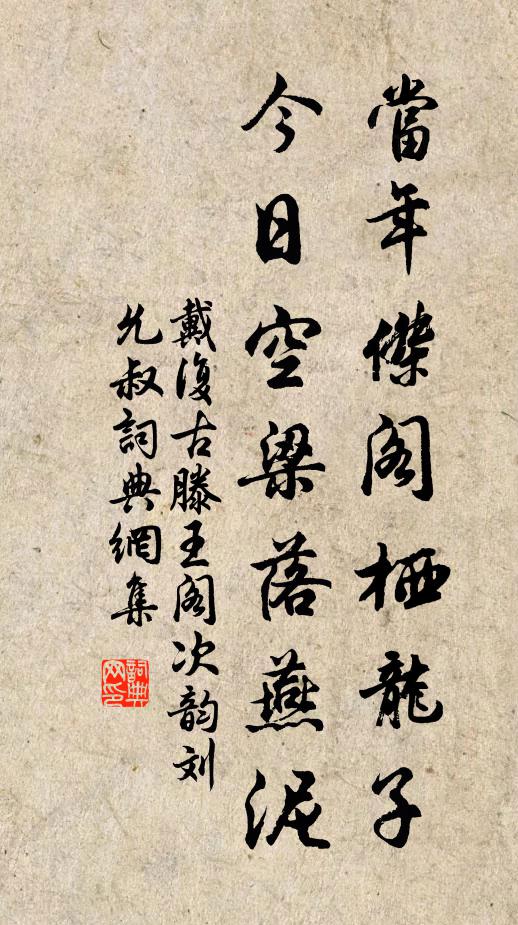 當年傑閣栖龍子
今日空梁落燕泥
戴復古滕王阁次韵刘
允叔詞典網集
詞典
网印